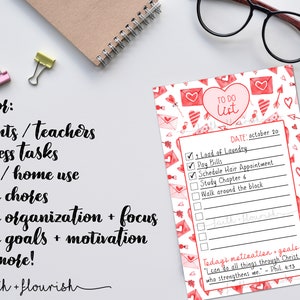 or:
nts / teachers
ess tasks
/ home use
chores
organization + focus
goals + motivation
more!
th + flourish
TO DO
list
DATE: october 20
1 Load of Laundry
Pay Bills
Schedule Hair Appointment
Study Chapter 6
Walk around the block
faith + flourish
Today's motivation + goals
"I can do all things through Christ
who strengthens me" - Phil 4:13